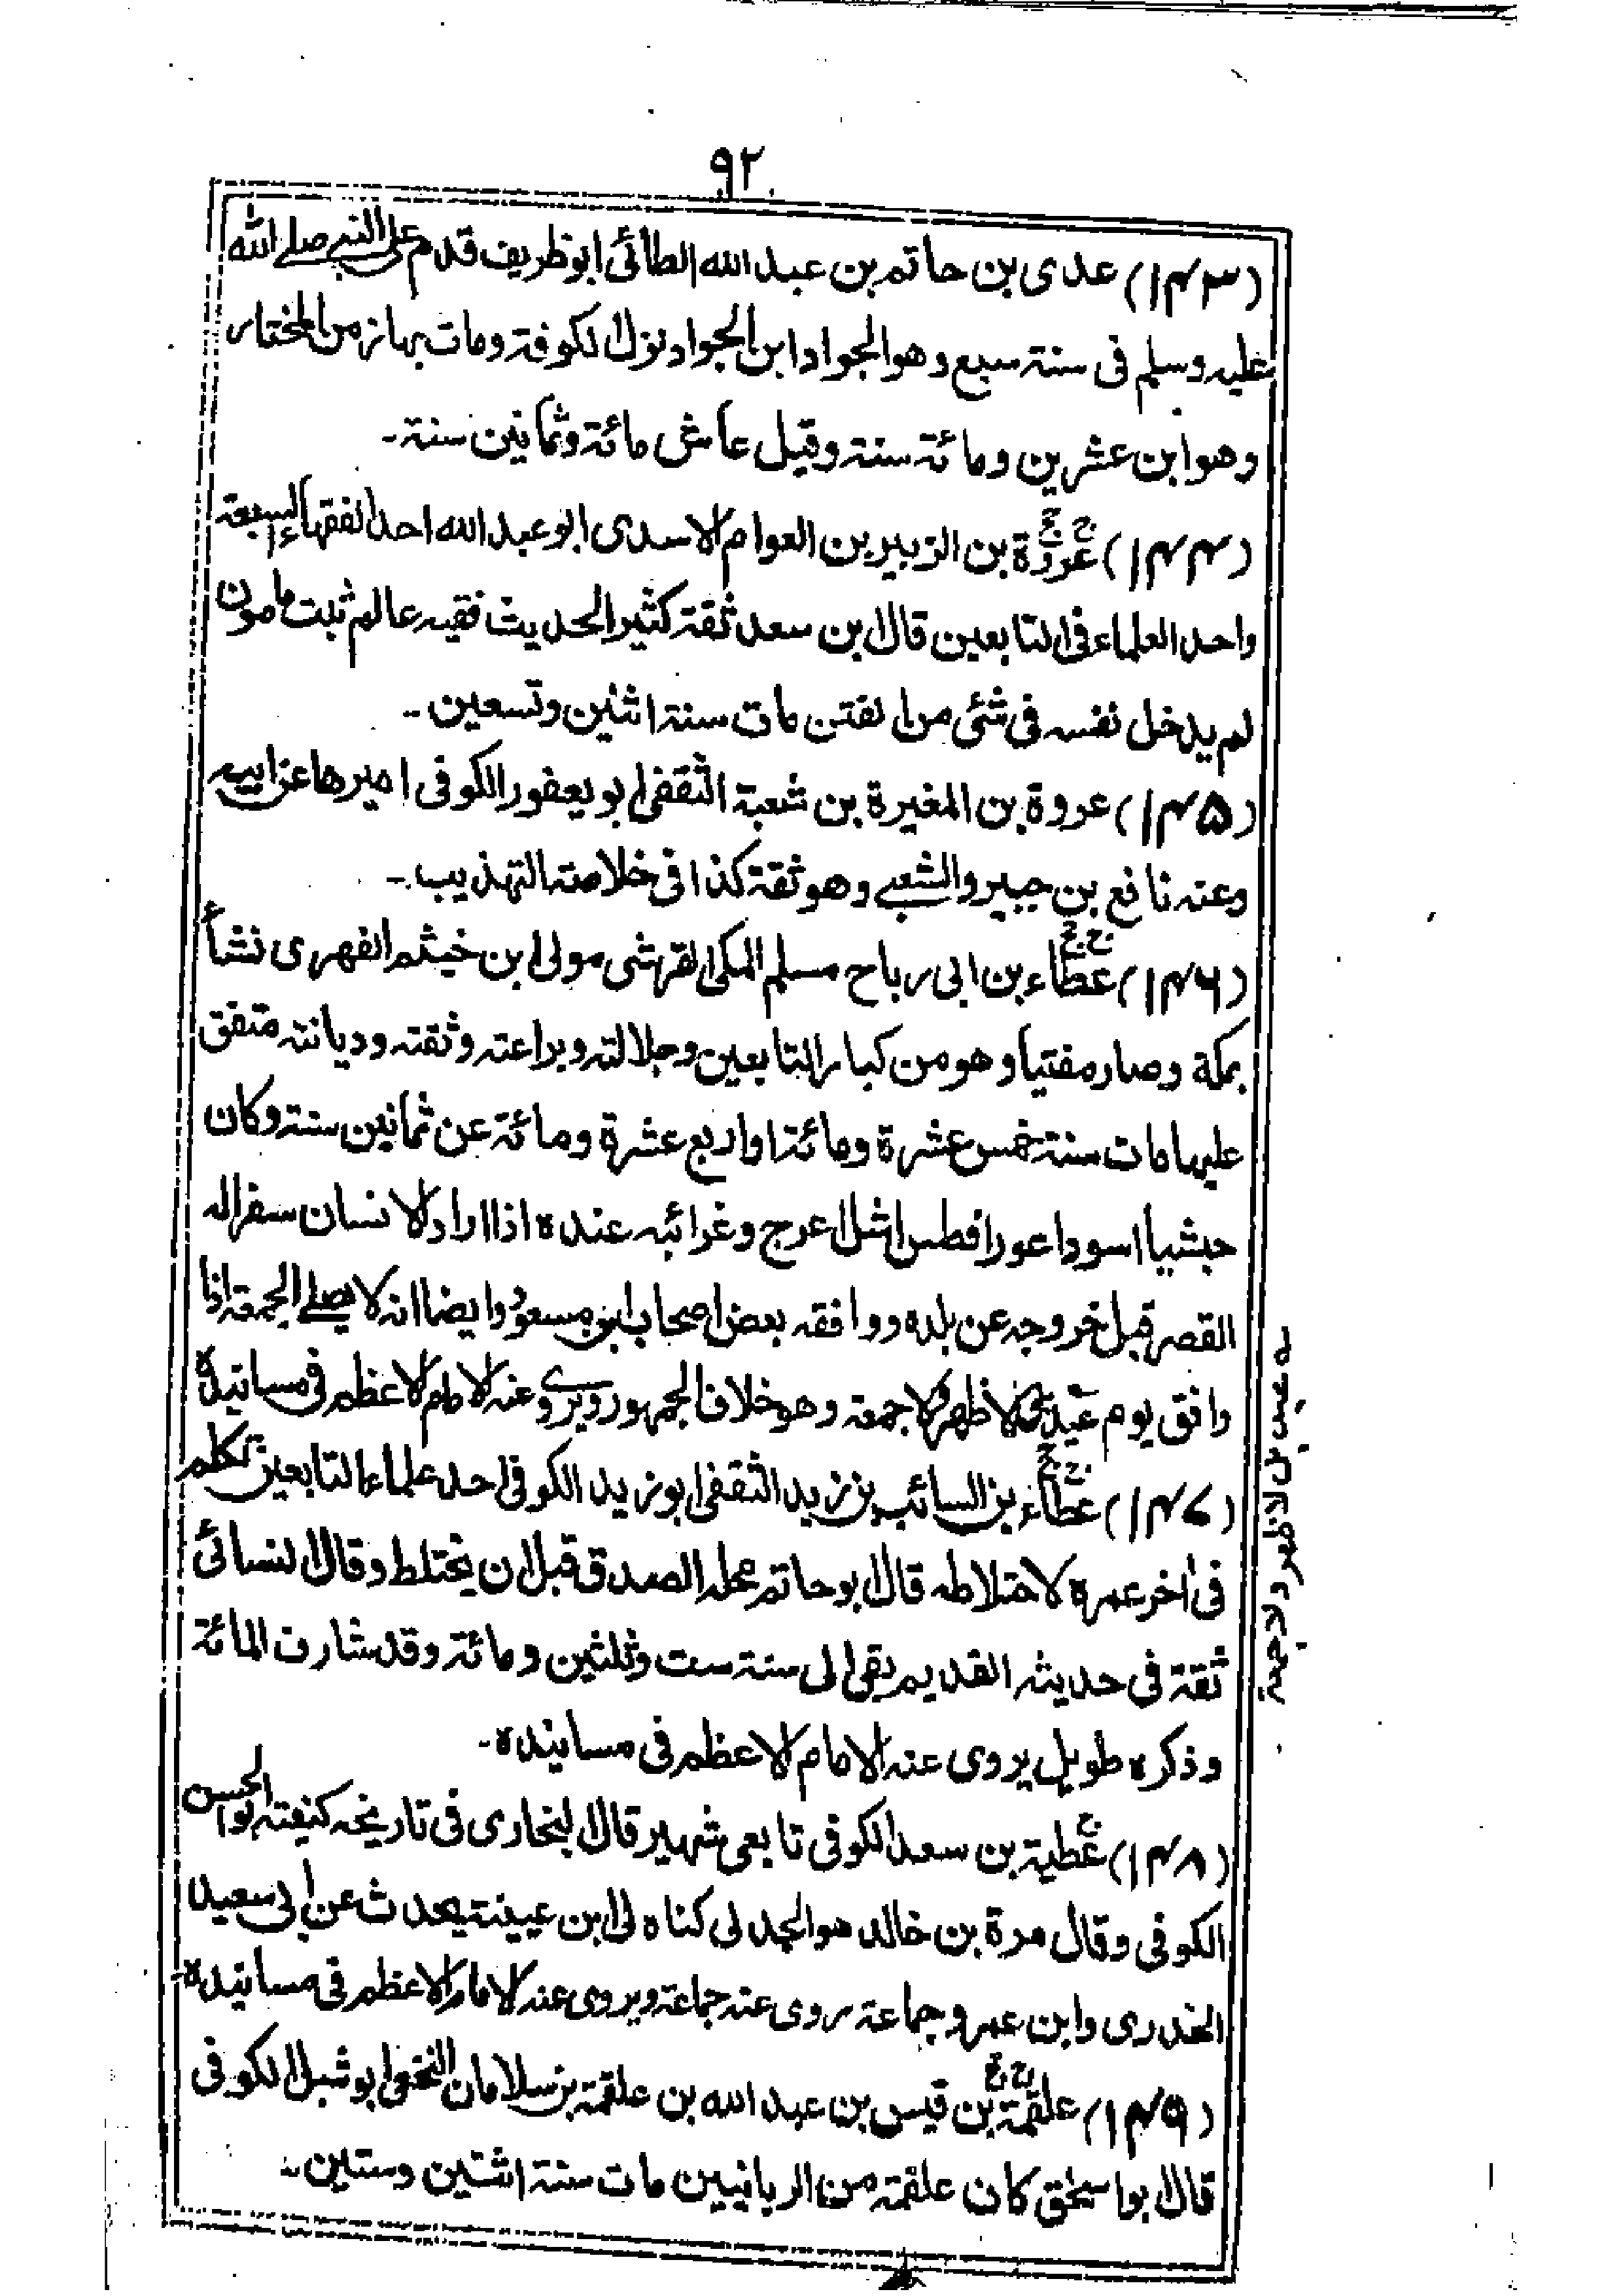 ۹۲
(۱۴۳) عدی بن حاتم بن عبد الله الطائی ابو ظریف قدم علی النبی صلے الله
علیه وسلم فی سنة سبع وهو الجواد ابن الجواد نزل الکوفة ومات بها زمن المختار
وهو ابن عشرین ومائة سنة وقیل عاش مائة وثمانین سنة۔
(۱۴۴) عروة بن الزبیر بن العوام الاسدی ابو عبد الله احد الفقهاء السبعة
واحد العلماء فی التابعین قال ابن سعد ثقة کثیر الحدیث فقیه عالم ثبت مامون
لم یدخل نفسه فی شئی من الفتن مات سنة اثنین وتسعین۔
(۱۴۵) عروة بن المغیرة بن شعبة الثقفی ابو یعفور الکوفی امیرها عن ابیه
وعنه نافع بن جبیر والشعبے وهو ثقة کذا فی خلاصة التهذیب۔
(۱۴۶) عطاء بن ابی رباح مسلم المکی القرشی مولی ابن خیثم الفهری نشأ
بمکة وصار مفتیا وهو من کبار التابعین وجلالته وبراعته وثقته ودیانته متفق
علیها مات سنة خمس عشرة ومائة او اربع عشرة ومائة عن ثمانین سنة وکان
حبشیا اسود اعور افطس اشل اعرج وغرائبه عنده اذا اراد الانسان سفرا له
القصر قبل خروجه عن بلده ووافقه بعض اصحاب ابن مسعودؓ وایضا انه لا یصلے الجمعة اذا
وافق یوم عید لا ظهر ولا جمعة وهو خلاف الجمهور ویروی عنه الامام الاعظم فی مسانیده
(۱۴۷) عطاء بن السائب بن زید الثقفی ابو زید الکوفی احد علماء التابعین تکلم
فی اٰخر عمره لاختلاطه قال ابو حاتم محله الصدق قبل ان یختلط وقال النسائی
ثقة فی حدیثه القدیم بقی الی سنة ست وثلثین ومائة وقد شارف المائة
وذکره طویل یروی عنه الامام الاعظم فی مسانیده۔
(۱۴۸) عطیة بن سعد الکوفی تابعی شهیر قال البخاری فی تاریخه کنیته ابو الحسن
الکوفی وقال مرة بن خالد هو الجدلی کناه لی ابن عیینة یحدث عن ابی سعید
الخدری وابن عمر وجماعة روی عنه جماعة ویروی عنه الامام الاعظم فی مسانیده۔
(۱۴۹) علقمة بن قیس بن عبد الله بن علقمة بن سلامان النخعی ابو شبل الکوفی
قال ابو اسحٰق کان علقمة من الربانیین مات سنة اثنتین وستین۔